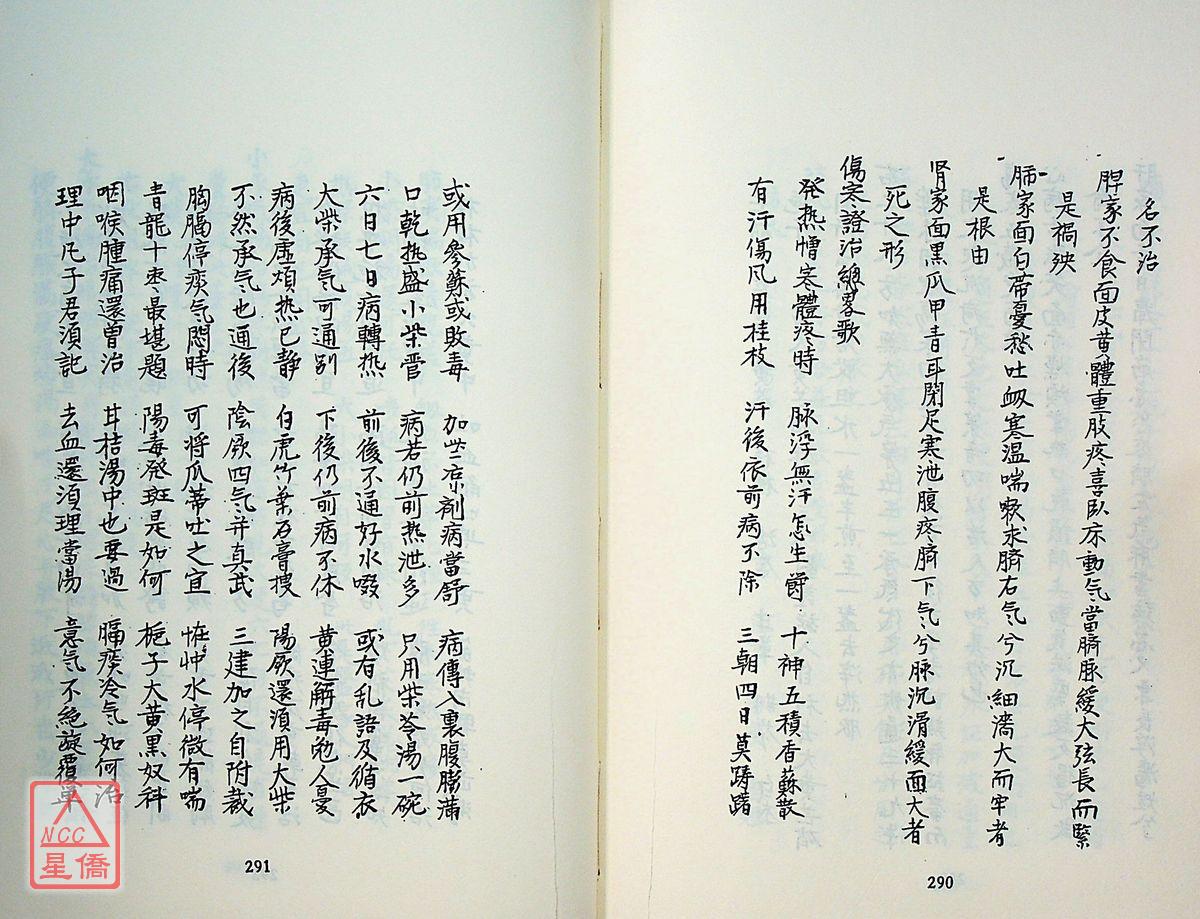 名不治
脾家不食面皮黄體重肢疼喜臥床動气當臍脉緩大弦長而緊
是禍殃
肺家面白帶憂愁吐衂寒温喘嗽求臍右气兮沉細濇大而牢者
是根由
腎家面黑爪甲青耳閉足寒泄腹疼臍下气兮脉沉滑緩而大者
死之形
傷寒證治總畧歌
發热憎寒體疼時 脉浮無汗怎生醫 十神五積香蘇散
有汗傷风用桂枝 汗後依前病不除 三朝四日莫踌躇
290
或用參蘇或敗毒 加些凉剤病當舒 病傳入裏腹膨滿
口乾热盛小柴管 病若仍前热泄多 只用柴苓湯一碗
六日七日病轉热 前後不通好水啜 或有乱語及循衣
大柴承气可通别 下後仍前病不休 黄連解毒免人憂
病後虚煩热已静 白虎竹葉石膏搜 陽厥還湏用大柴
不然承气也通後 陰厥四气并真武 三建加之自附裁
胸膈停痰气悶時 可将瓜蒂吐之宜 怔忡水停微有喘
青龍十枣最堪題 陽毒発斑是如何 栀子大黄黒奴科
咽喉腫痛還曽治 甘桔湯中也要過 膈痰冷气如何治
理中凡子君湏記 去血還湏理當湯 意气不絶旋覆單
291
NCC
星僑